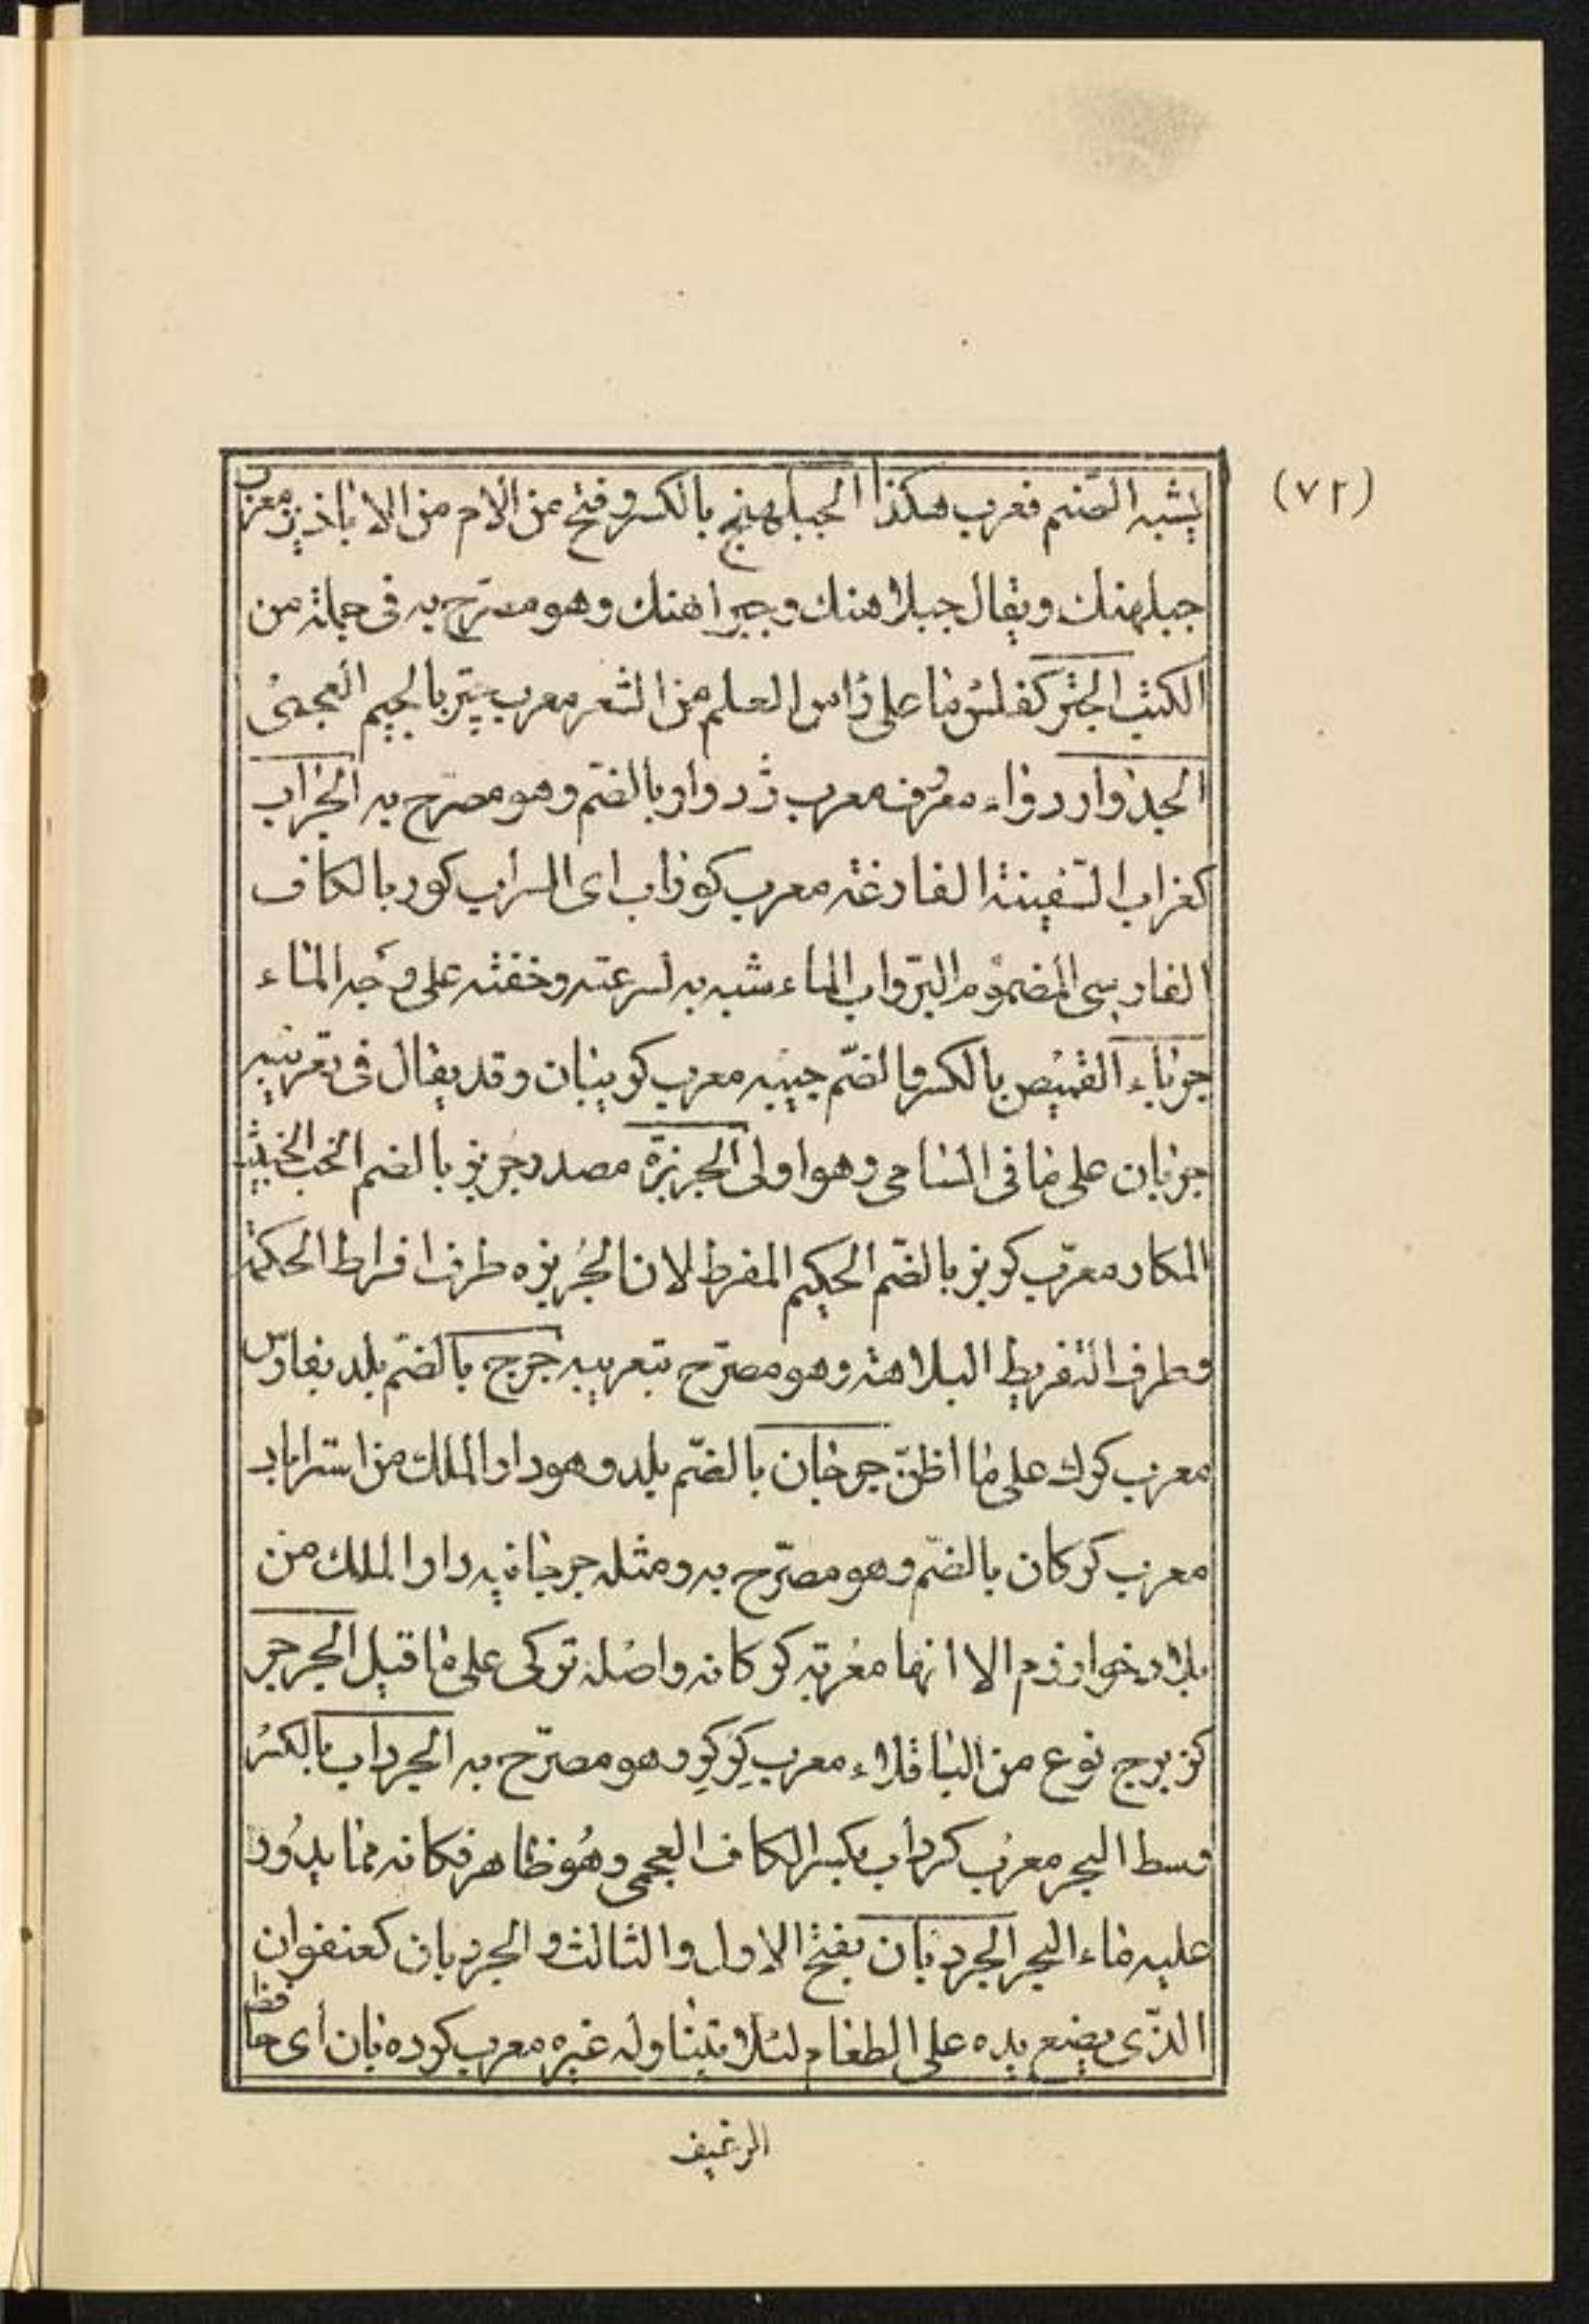 (٧٢)
يشبه الصّنم فعرب هكذا الجبلهنج بالكسر وفتح من اللام من الاباذير معرب
جبلهنك ويقال جبلاهنك وجبراهنك وهو مصرّح به فى جملة من
الكتب الجتر كفلس ما على رأس العلم من الشعر معرب چتر بالجيم العجمى
الجذوار دواء معروف معرب ژدوار بالضّم وهو مصرّح به الجراب
كغراب السّفينة الفارغة معرب كوراب اى السراب كور بالكاف
الفارسى المضموم البرّ واب الماء شبه به لسرعته وخفته على وجه الماء
جرباء القميص بالكسر والضّم جيبه معرب كريبان وقد يقال فى تعريبه
جربان على ما فى السامى وهو اولى الجربزة مصدر جربز بالضم الخب الخبيث
المكار معرّب كربز بالضّم الحكيم المفرط لان الجُربزه طرف افراط الحكمة
وطرف التفريط البلاهة وهو مصرّح بتعريبه جرج بالضّم بلد بفارس
معرب كرك على ما اظنّ جرجان بالضّم بلد وهو دار الملك من استراباد
معرب كركان بالضّم وهو مصرّح به ومثله جرجانيه دار الملك من
بلاد خوارزم الا انها معُربة كركانه واصُله تركى على ما قيل الجرجر
كزبرج نوع من الباقلاء معرب كِركِر وهو مصرّح به الجرداب بالكسر
وسط البحر معرب كرداب بكسر الكاف العجمى وهُو ظاهر فكانه مما يدُور
عليه ماء البحر الجردبان بفتح الاول والثالث و الجردبان كعنفوان
الذّى يضع يده على الطعام لئلا يتناوله غيره معرب كرده بان أى حافظ
الرغيف